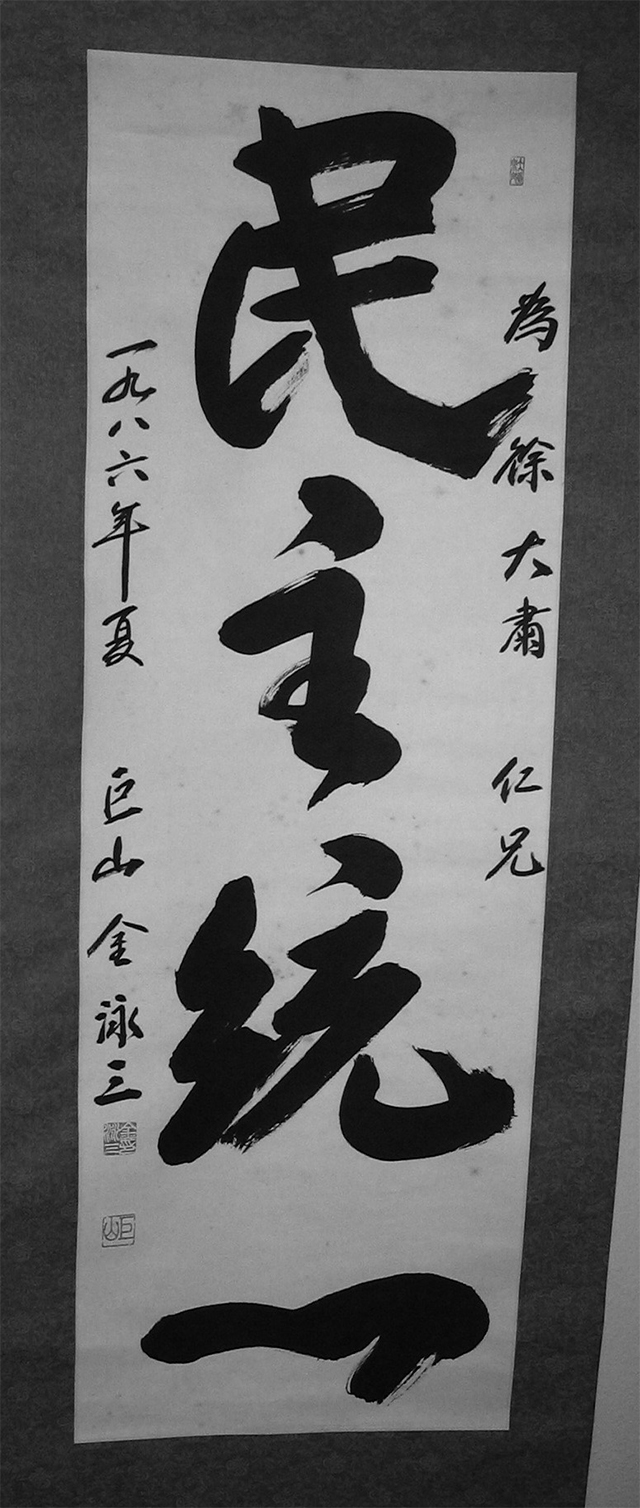 為徐大肅 仁兄
民主統一
一九八六年夏 巨山 金泳三
金泳三
巨山